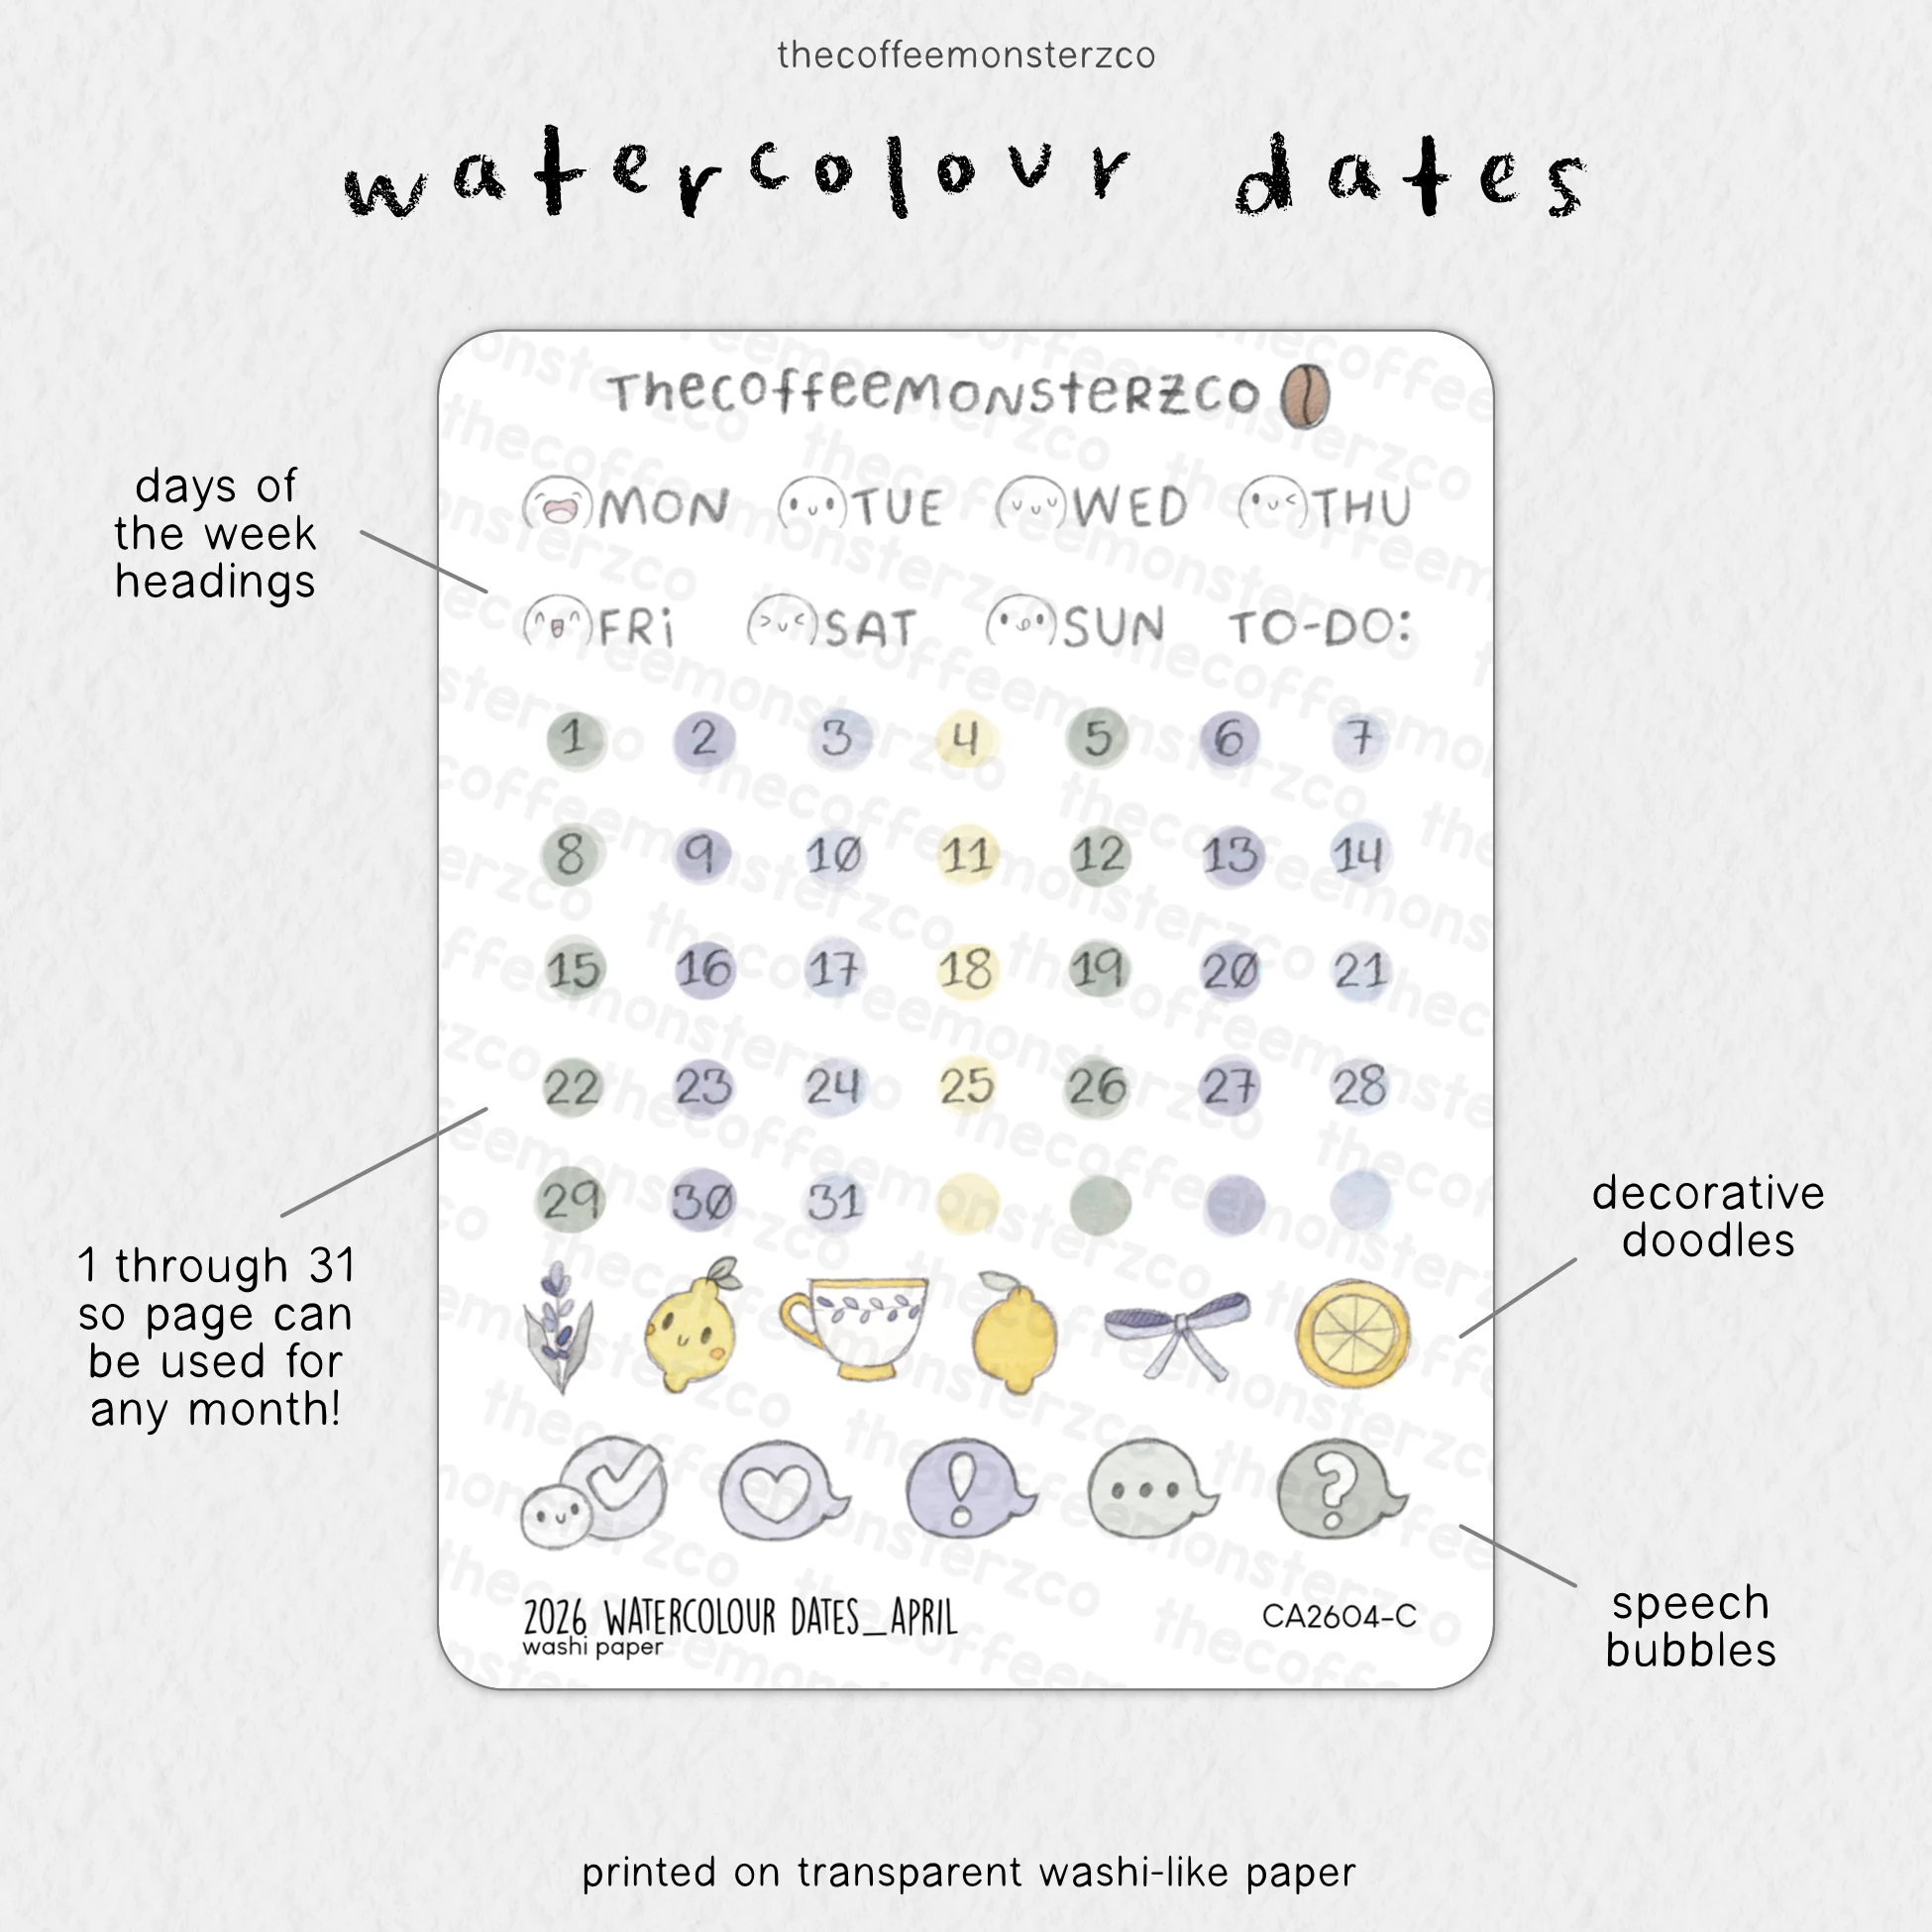 thecoffeemonsterzco
watercolour dates
Thecoffeemonsterzco
MON TUE WED THU
FRi SAT SUN TO-DO:
days of
the week
headings
1 2 3 4 5 6 7
8 9 10 11 12 13 14
15 16 17 18 19 20 21
22 23 24 25 26 27 28
29 30 31
1 through 31
so page can
be used for
any month!
decorative
doodles
! ... ?
speech
bubbles
2026 WATERCOLOUR DATES_APRIL
washi paper
CA2604-C
printed on transparent washi-like paper